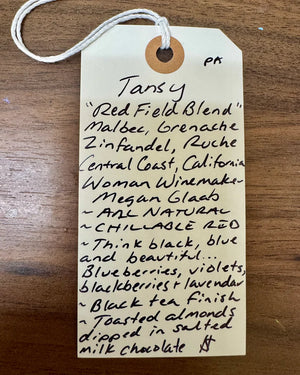 PA
Tansy
"Red Field Blend"
Malbec, Grenache
Zinfandel, Ruche
Central Coast, California
Woman Winemaker
Megan Glaab
~ ALL NATURAL
~ CHILLABLE RED
~ Think black, blue
and beautiful...
Blueberries, violets,
blackberries + lavendar
~ Black tea finish
~ Toasted almonds
dipped in salted
milk chocolate